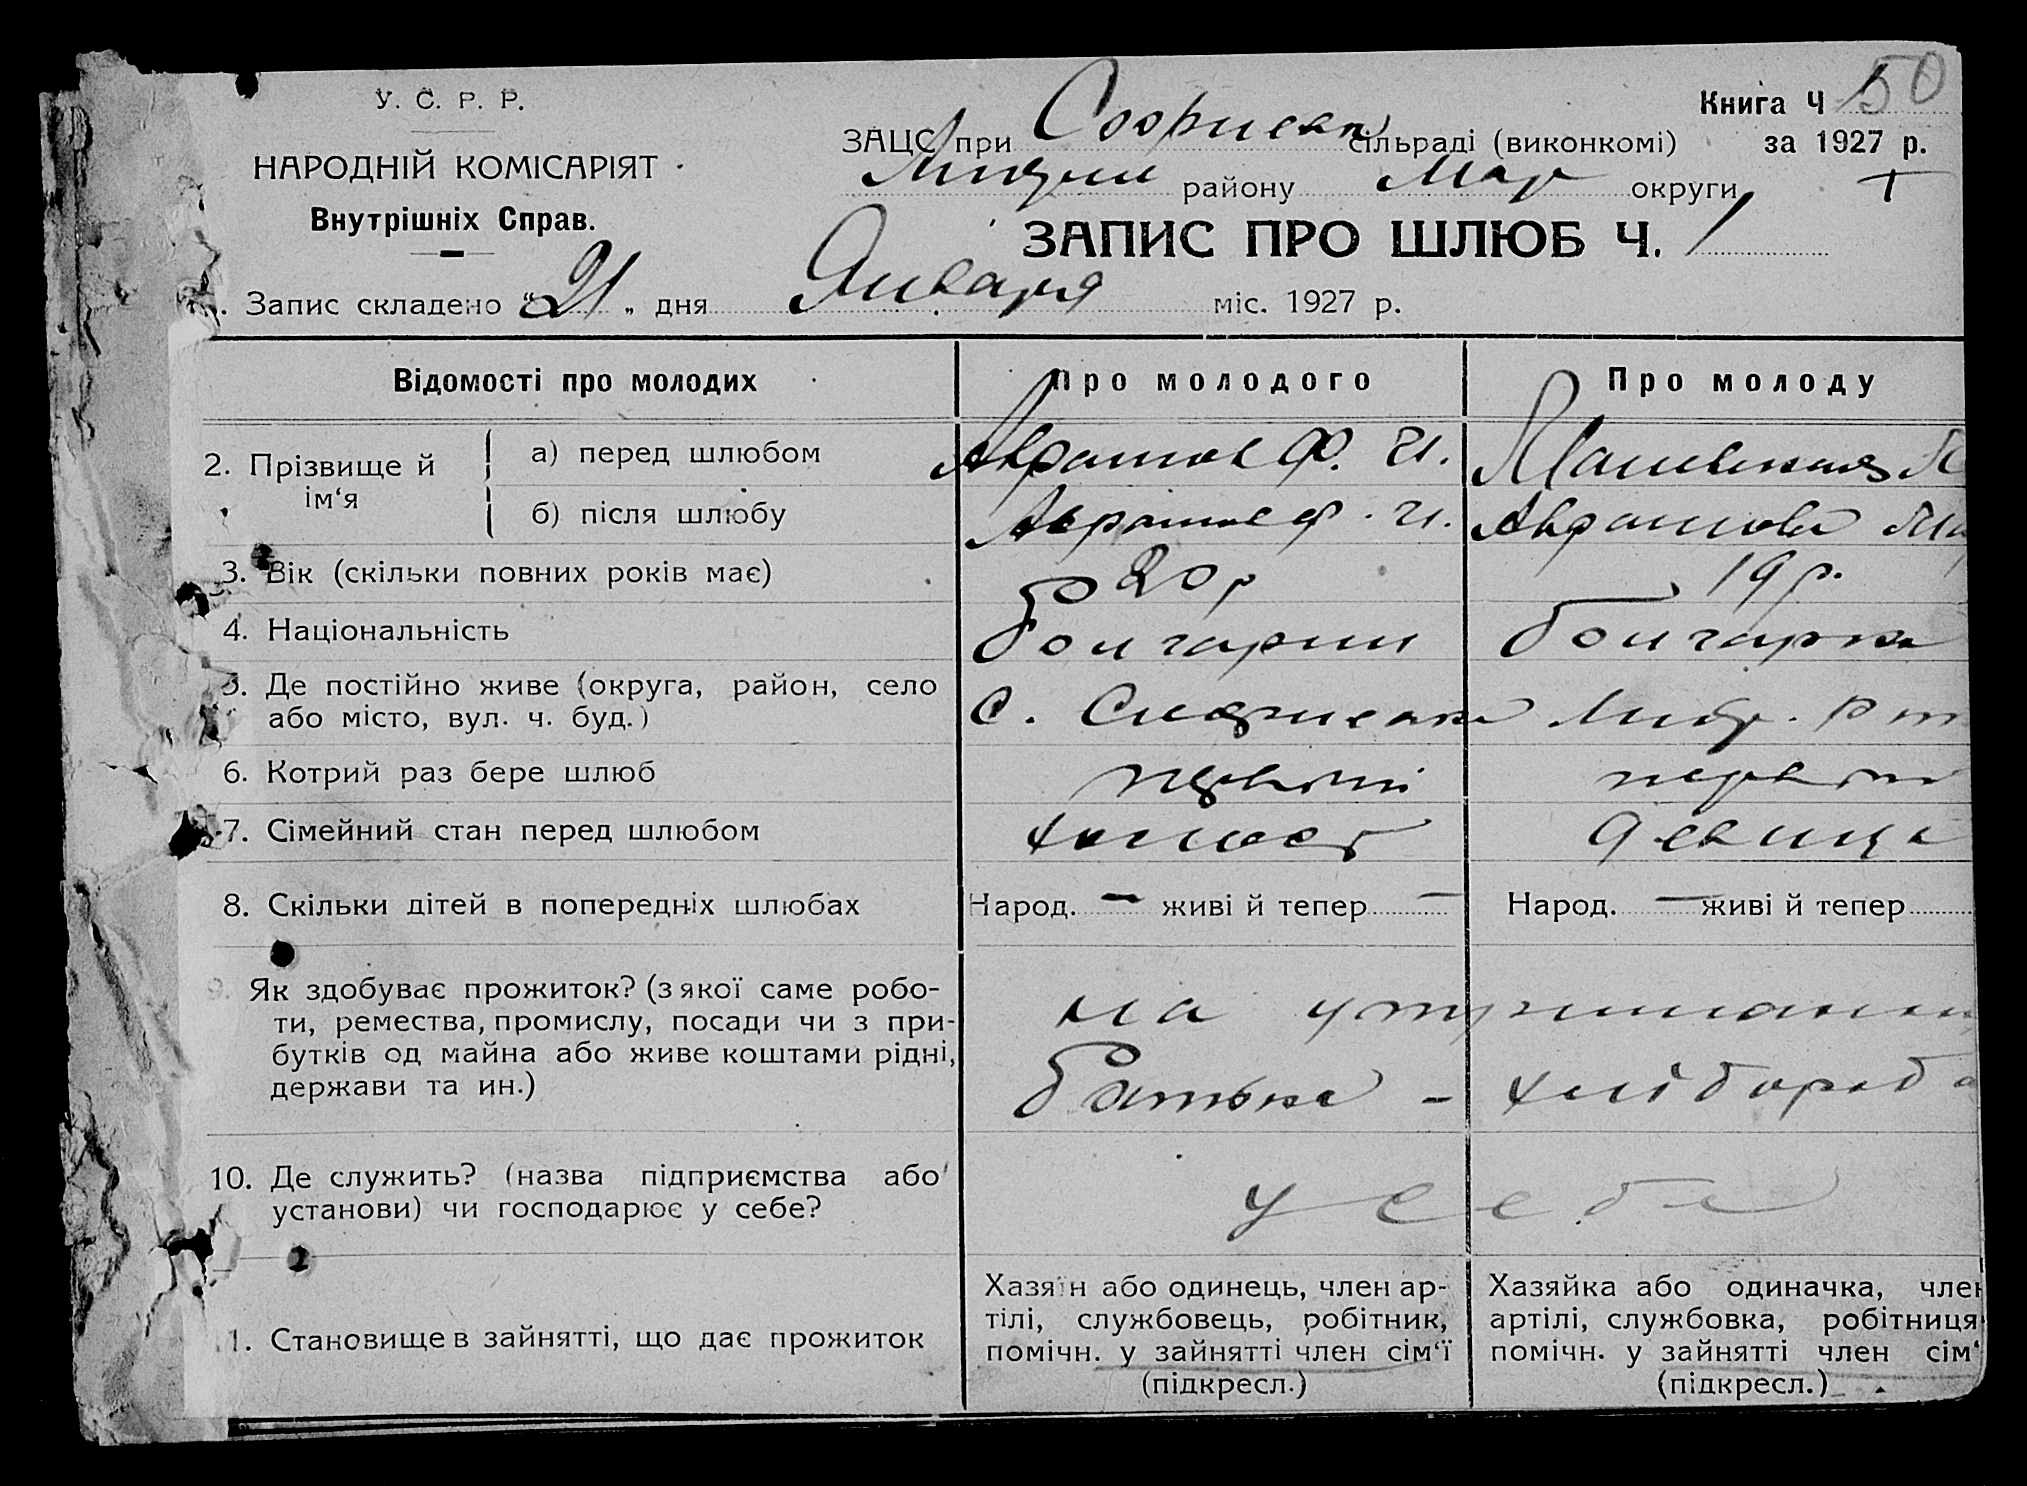 У. С. Р. Р.
НАРОДНІЙ КОМІСАРІЯТ
Внутрішніх Справ.
Книга Ч 50
за 1927 р.
ЗАЦС при Софиевк сільраді (виконкомі)
району Мар округи
ЗАПИС ПРО ШЛЮБ Ч. 1
. Запис складено „21" дня Января міс. 1927 р.
Відомості про молодих Про молодого Про молоду
2. Прізвище й ім'я
а) перед шлюбом Аврамов Ф. И.
б) після шлюбу Аврамов Ф. И. Аврамова
3. Вік (скільки повних років має) 20 р 19 р.
4. Національність болгарин болгарка
5. Де постійно живе (округа, район, село с. Софиевка
або місто, вул. ч. буд.)
6. Котрий раз бере шлюб первый первый
7. Сімейний стан перед шлюбом холост девица
8. Скільки дітей в попередніх шлюбах Народ. — живі й тепер — Народ. — живі й тепер
9. Як здобуває прожиток? (з якої саме робо- на утриманни
ти, ремества, промислу, посади чи з при-
бутків од майна або живе коштами рідні, батька - хлібороба
держави та ин.)
10. Де служить? (назва підприємства або у себе
установи) чи господарює у себе?
11. Становище в зайнятті, що дає прожиток
Хазяїн або одинець, член ар-
тілі, службовець, робітник,
помічн. у зайнятті член сім'ї
(підкресл.)
Хазяйка або одиначка, член
артілі, службовка, робітниця
помічн. у зайнятті член сім'
(підкресл.)